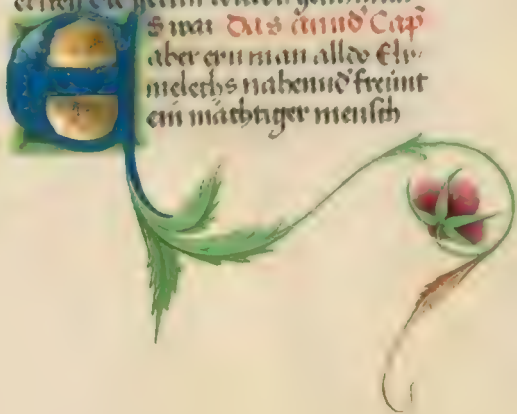 ES war Das annd' Cap
aber ein man alldo Eli-
melechs nahennd' freünt
ein mächtiger mensch